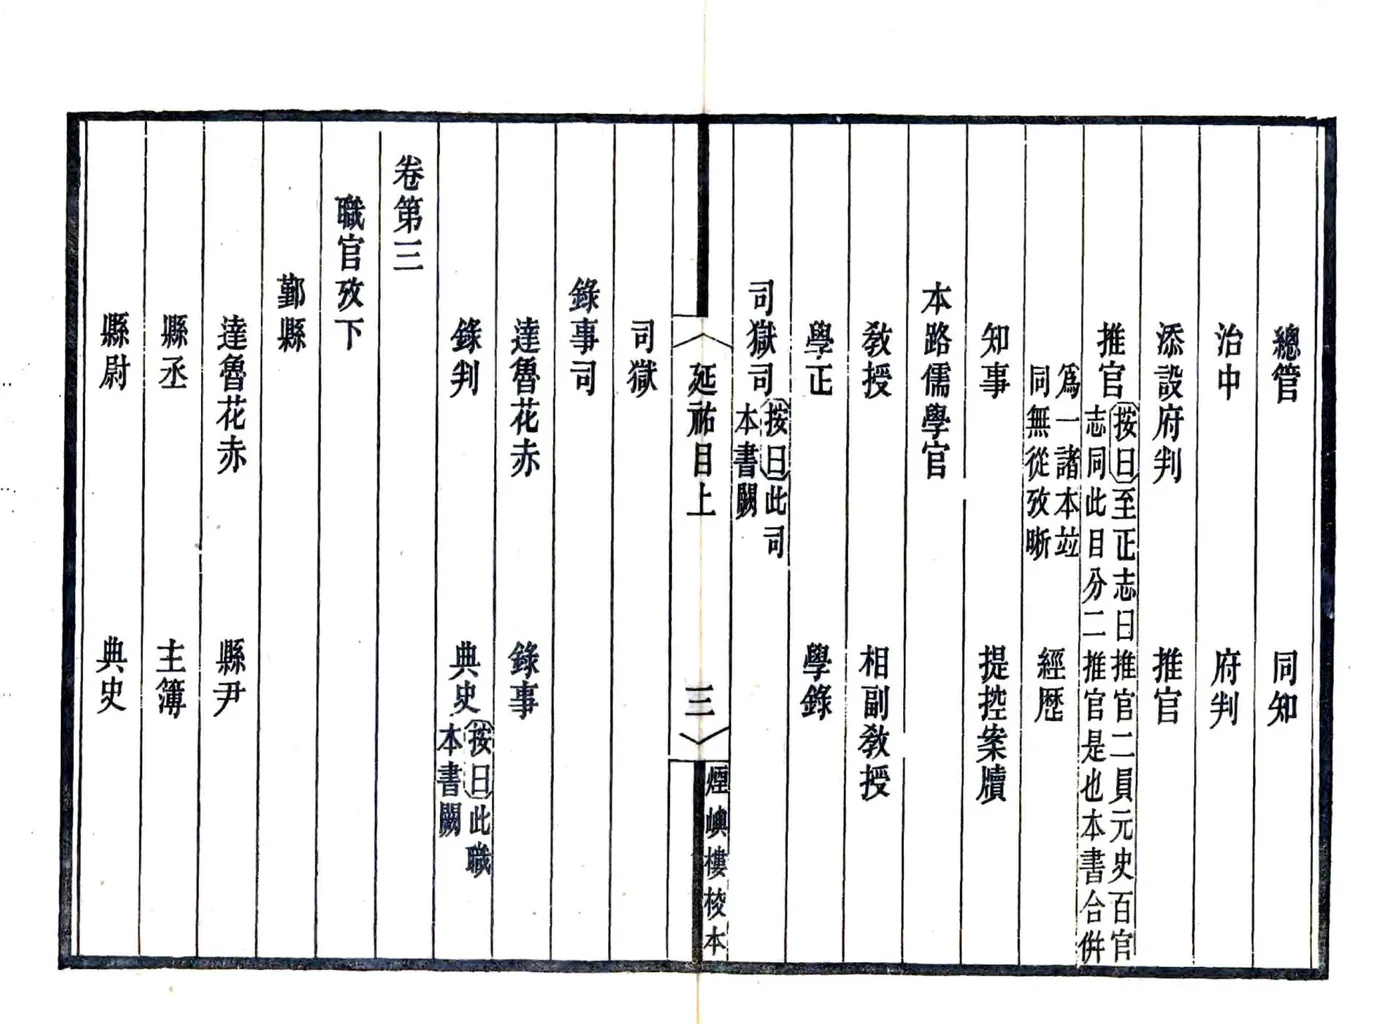 總管 同知
治中 府判
添設府判 推官
推官 按曰至正志曰推官二員元史百官
志同此目分二推官是也本書合併
爲一諸本竝
同無從攷晰 經歷
知事 提控案牘
本路儒學官
敎授 相副敎授
學正 學錄
司獄司 按曰此司
本書闕
延祐目上 三
煙嶼樓校本
司獄
錄事司
達魯花赤 錄事
錄判 典史 按曰此職
本書闕
卷第三
職官攷下
鄞縣
達魯花赤 縣尹
縣丞 主簿
縣尉 典史